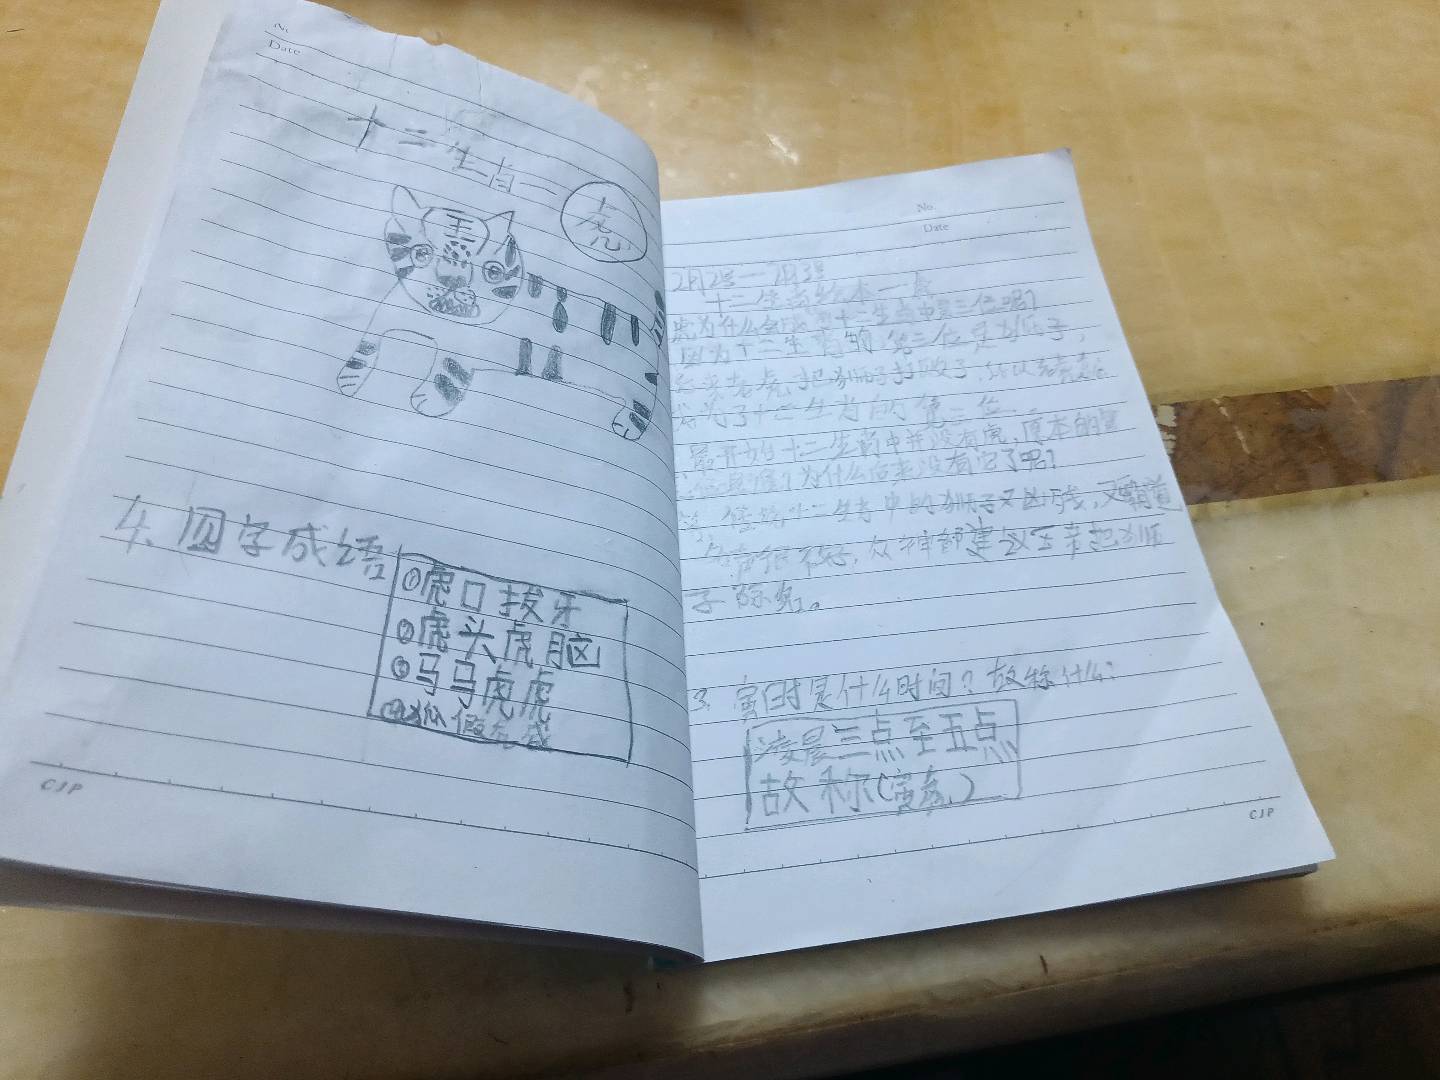 No.
Date
十二生肖一
虎
王
4. 四字成语
①虎口拔牙
②虎头虎脑
③马马虎虎
④狐假虎威
CJP
No.
Date
2月2号一2月3号
十二生肖绘本一虎
虎为什么会成为十二生肖中第三位呢？
因为十二生肖的第三位是狮子，
后来老虎把狮子打败了，所以
成为了十二生肖的第三位。
最开始的十二生肖中并没有虎，原本的第
三位是谁？为什么后来没有它了呢？
十二生肖中的狮子又凶残，又霸道
名声很不好，众神都建议玉帝把狮
子除名。
3. 寅时是什么时间？故称什么：
凌晨三点至五点
故称(寅虎)
CJP